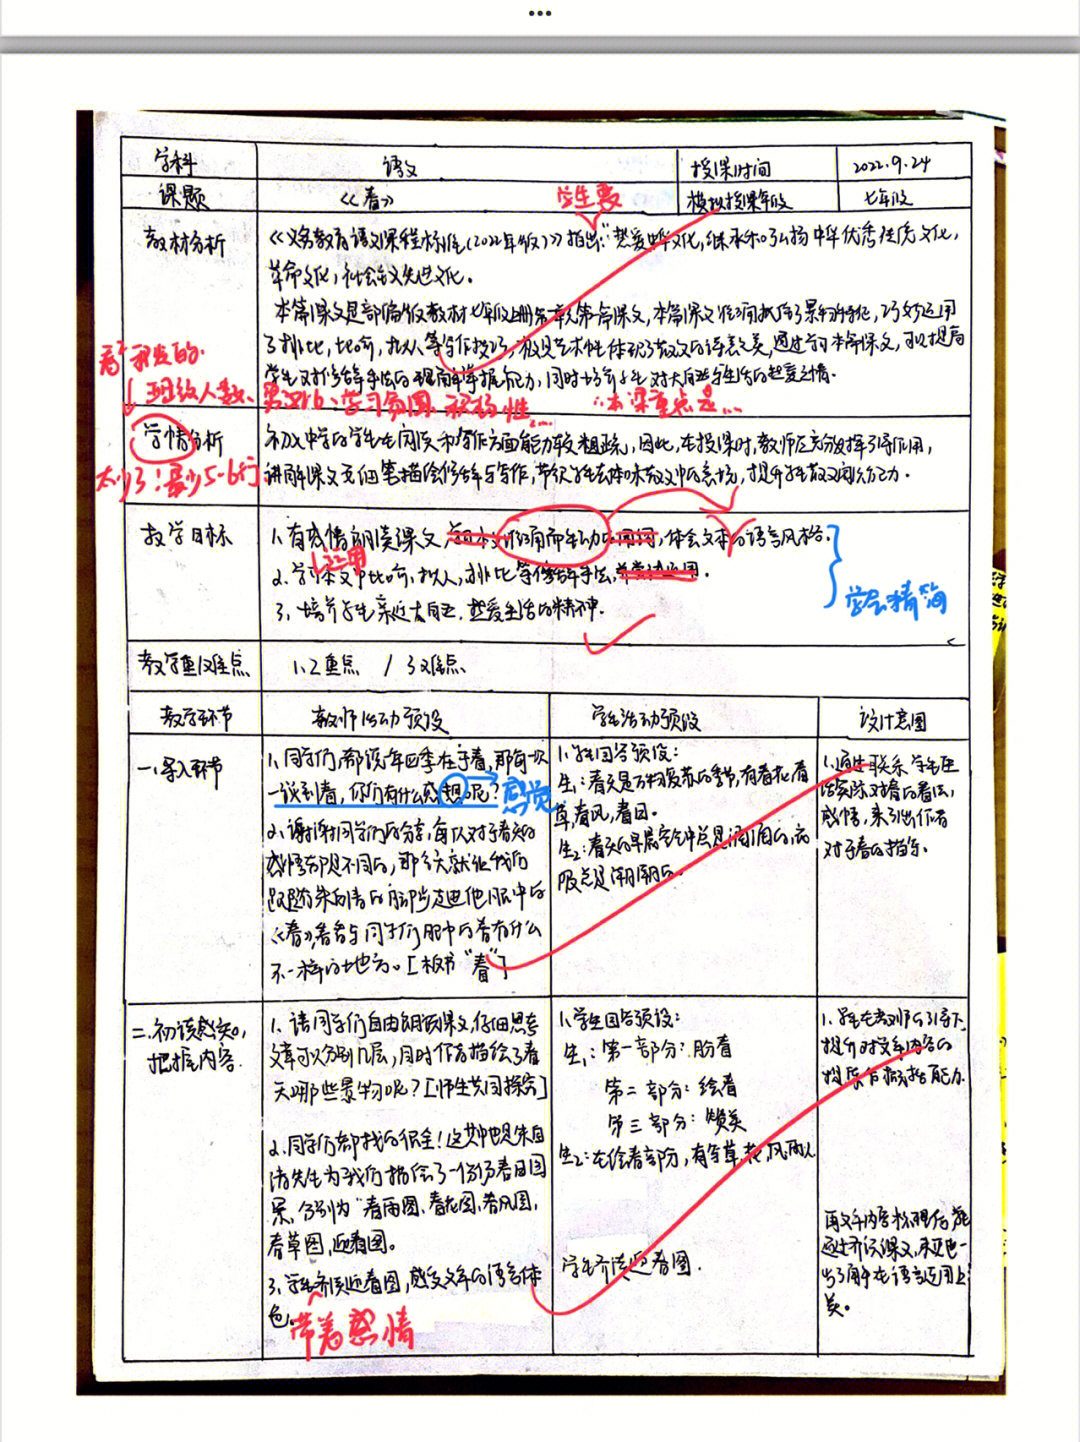 学科 语文 授课时间 2022.9.24
课题 《春》 模拟授课年段 七年级
学生要
教材分析
《义务教育语文课程标准(2022年版)》指出:"热爱中华文化,继承和弘扬中华优秀传统文化,
革命文化,社会主义先进文化。
本篇课文是部编版教材七年级上册第一单元第一篇课文,本篇课文
了排比,比喻,拟人等写作技巧,
学生对修辞手法的理解掌握能力,同时培养学生对大自然与生活的热爱之情。
班级人数、男女比、学习氛围、积极性...
∴本课重点是...
学情分析
太少了!最少5-6行
初入中学的学生在阅读和写作方面能力较粗疏,因此,在授课时,教师应充分发挥引导作用,
教学目标
1.有感情朗读课文 体会文本的语言风格.
运用
2.学习本文中比喻,拟人,排比等修辞手法,
3.培养学生亲近大自然.热爱生活的精神.
学会精简
教学重难点 1、2重点 / 3难点
教学环节 教师活动预设 学生活动预设 设计意图
一.导入环节
1.同学们,都说一年四季在于春,那每一次
一谈到春,你们有什么感想呢?
感觉
2.谢谢同学们的分享,每个人对于春天的
感情都是不同的,那今天就让我们
跟随朱自清的脚步走进他眼中的
《春》,看看与同学们眼中的春有什么
不一样的地方。[板书"春"]
1.学生回答预设:
生1:春天是万物复苏的季节,有春花,春
草,春风,春雨。
1.通过联系学生生
活实际对春的看法,
感情,来引出作者
对于春的描写.
二.初读感知,
把握内容.
1.请同学们自由朗读课文,仔细思考
文章可以分别几层,同时作者描绘了春
天哪些景物呢?[师生共同探究]
2.同学们都找的很全!这其中也是朱自
清先生为我们描绘了一份份春日图
景,分别为"春雨图、春花图、春风图,
春草图,迎春图。
3.学生齐读迎春图,感受文章的语言体
色。
带着感情
1.学生回答预设:
生1:第一部分:盼春
第二部分:绘春
第三部分:赞美
生2:在绘春部分,有写草,花,风,雨,人
学生齐读迎春图.
1.学生在教师的引导下,
提升对文章内容的
探索与概括能力.